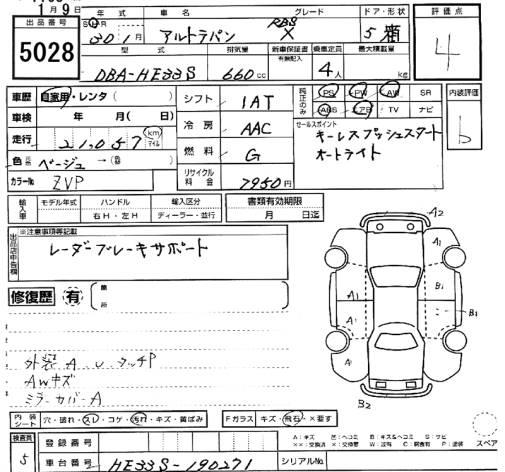 1月9日
出品番号
5028
年式 車名 グレード ドア・形状 評価点
30年1月 アルトラパン RBS X 5 箱 4
型式 排気量 新車保証書 有無記入 乗車定員 最大積載量
DBA-HE33S 660cc 4人 kg
車歴 自家用・レンタ( )
車検 年 月( )
走行 21,057 km マイル
色 ベージュ→( )
カラーNo. ZVP
シフト 1AT
冷房 AAC
燃料 G
リサイクル料金 7950円
純正のみ PS PW AW SR
ABS エアB TV ナビ
内装評価
b
セールスポイント
キーレスプッシュスタート
オートライト
輸入車 モデル年式 ハンドル 輸入区分 書類有効期限
右H・左H ディーラー・並行 月 日迄
出品店申告欄 ※注意事項等記載
レーダーブレーキサポート
修復歴 有 箇所
A2
A1
A1 B1
A1 B1
A1
B2
外装A U タッチP
AWキズ
ミラーカバーA
内装シート 穴・破れ・スレ・コゲ・汚れ・キズ・黄ばみ Fガラス キズ・飛石・×要す
検査員 5
登録番号
車台番号 HE33S-190271 シリアルNo.
スペア